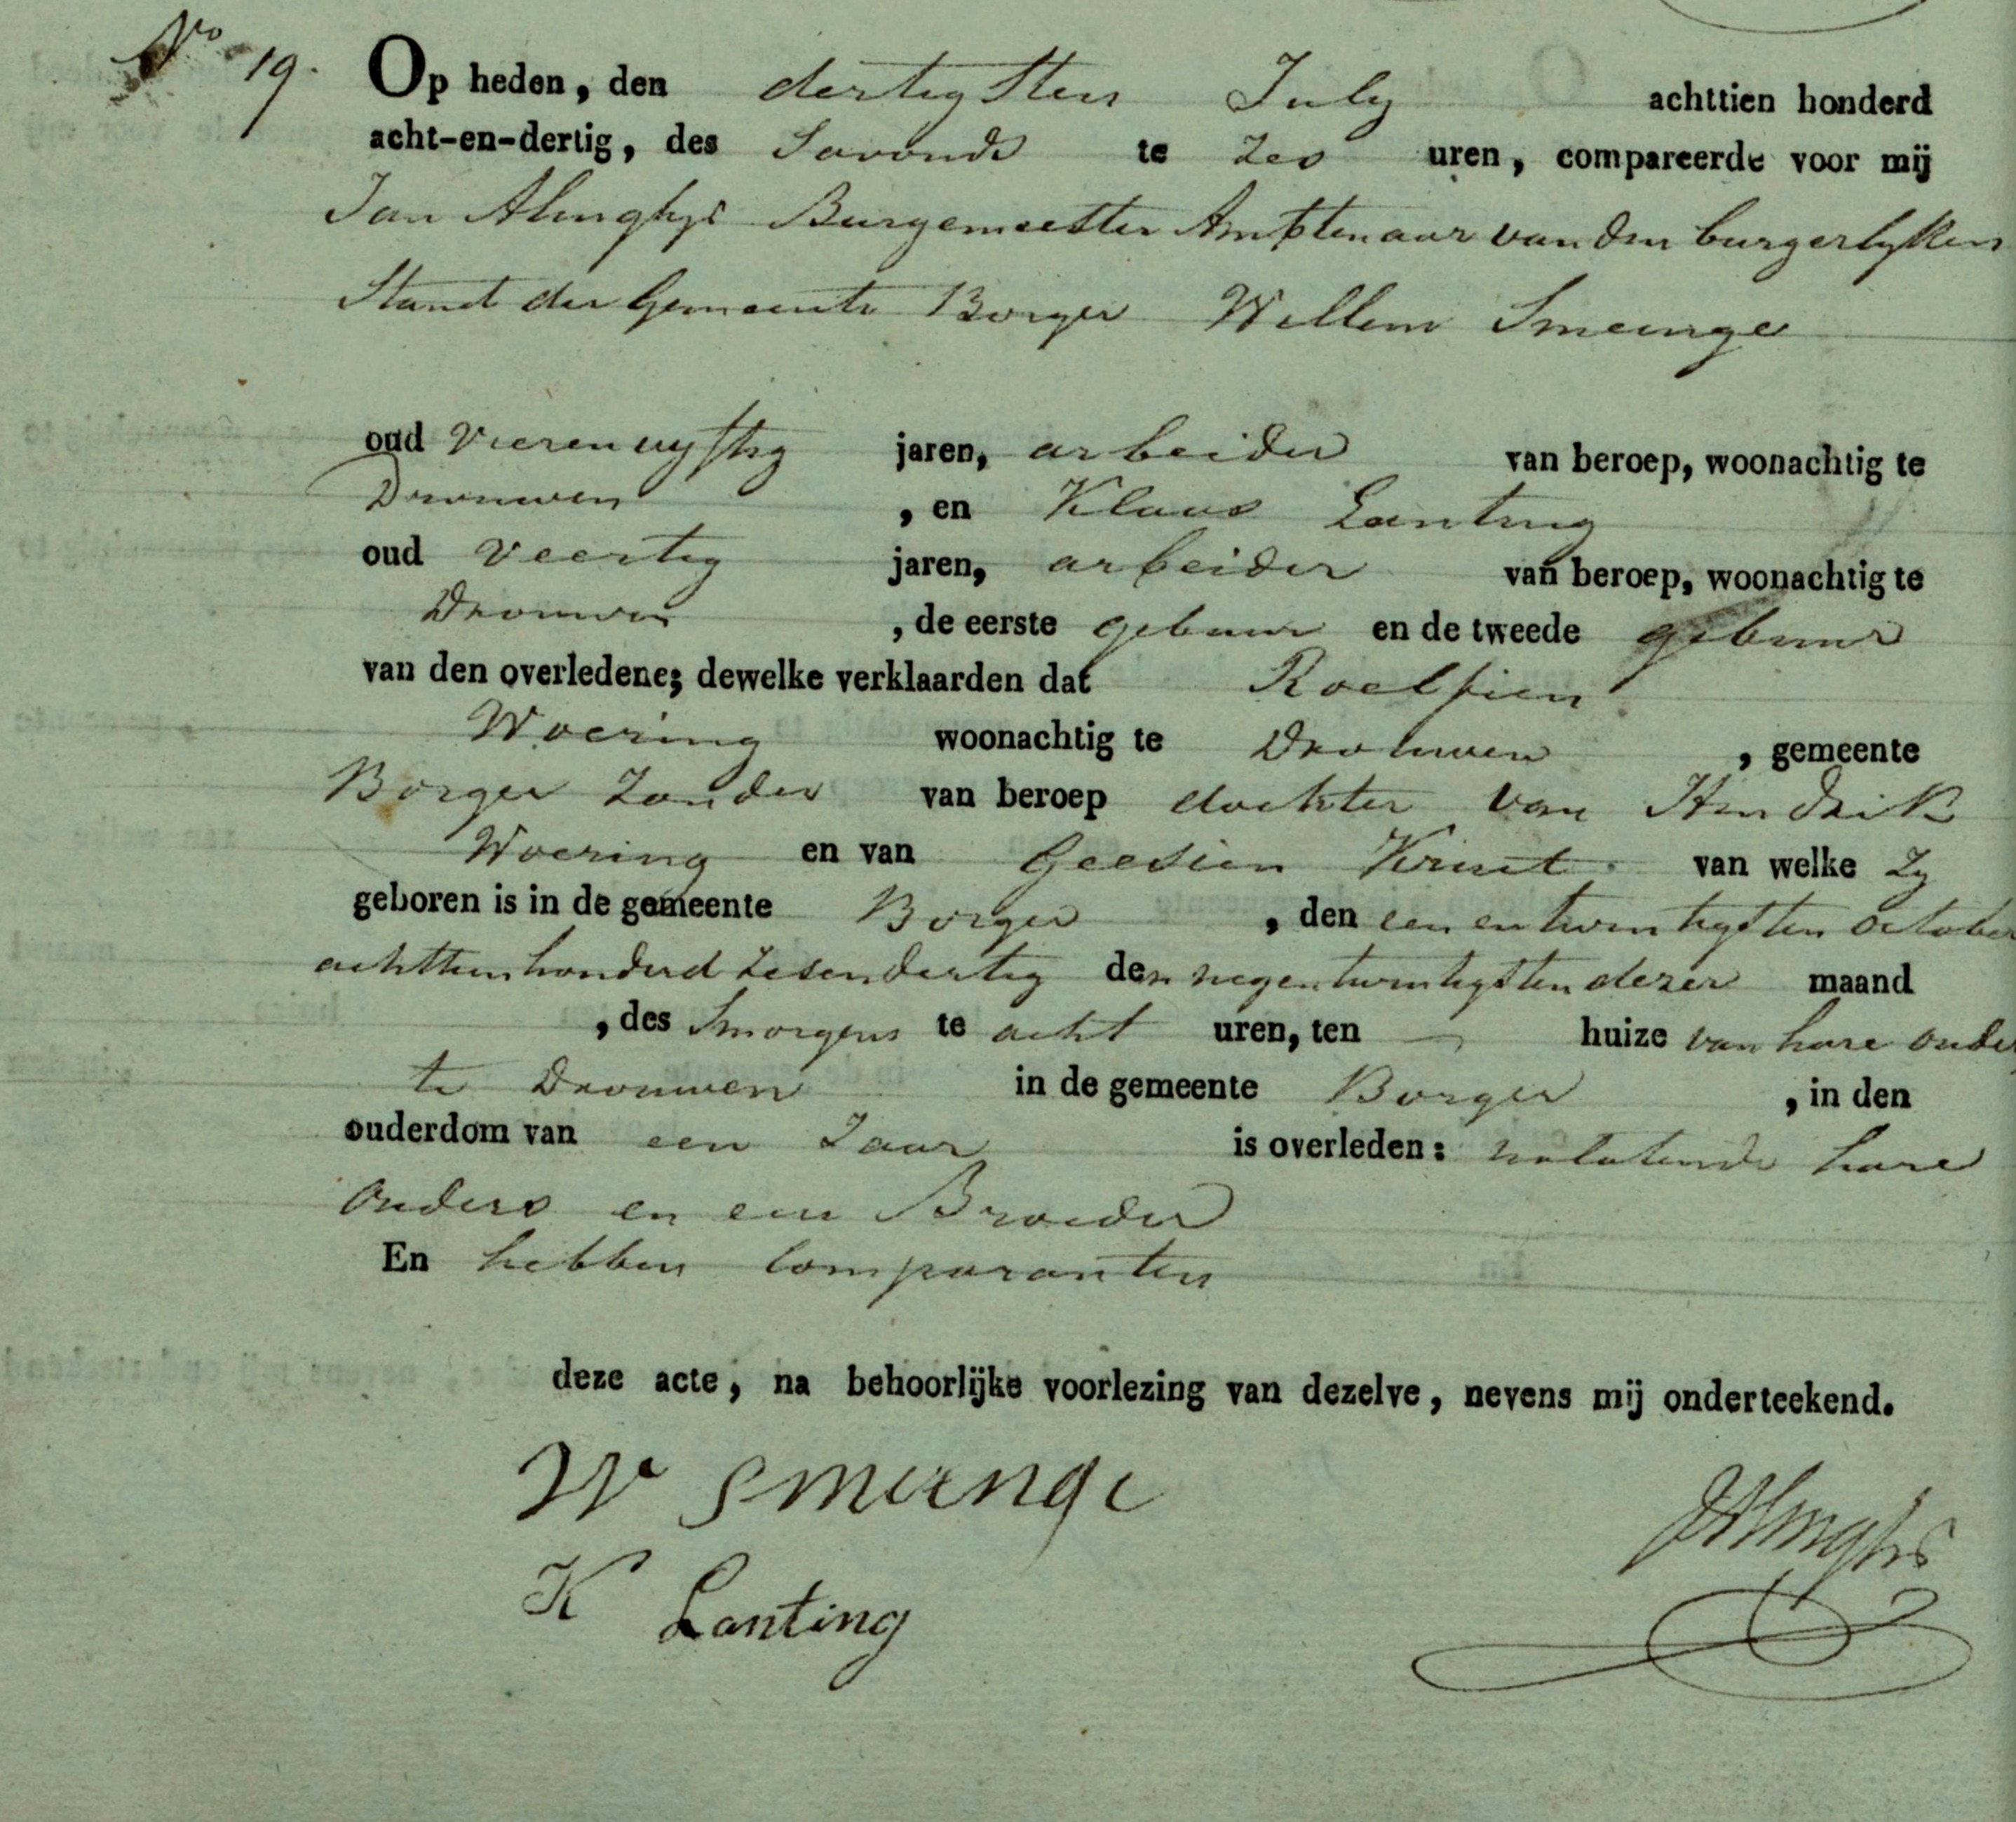 No 19. Op heden, den dertigsten July achttien honderd
acht-en-dertig, des Savonds te Zes uren, compareerde voor mij
Jan Alinghs Burgemeester Ambtenaar van den burgerlyken
Stand der Gemeente Borger Willem Smeenge
oud Vierenvyftig jaren, arbeider van beroep, woonachtig te
Drouwen , en Klaas Lanting
oud Veertig jaren, arbeider van beroep, woonachtig te
Drouwen , de eerste gebuur en de tweede gebuur
van den overledene; dewelke verklaarden dat Roelfien
Woering woonachtig te Drouwen , gemeente
Borger Zonder van beroep dochter van Hendrik
Woering en van Geesien van welke Zy
geboren is in de gemeente Borger , den een en twintigsten October
achttienhonderd Zesendertig den negentwintigsten dezer maand
, des Smorgens te acht uren, ten huize van hare oude
te Drouwen in de gemeente Borger , in den
ouderdom van een Jaar is overleden: nalatende hare
Ouders en een Broeder
En hebben Comparanten
deze acte, na behoorlijke voorlezing van dezelve, nevens mij onderteekend.
W Smeenge
JAlinghs
K Lanting